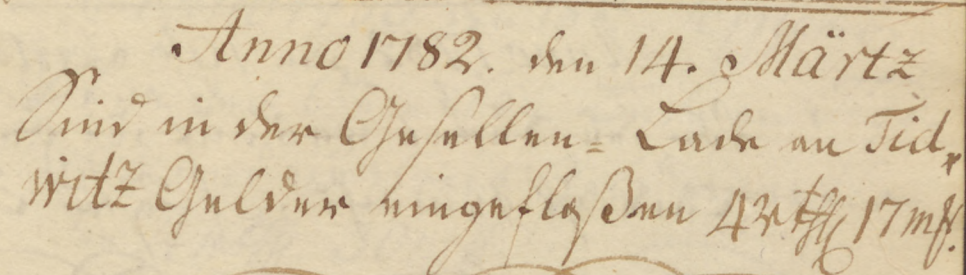 Anno 1782. den 14. Märtz
Sind in der Gesellen= Lade an Tid=
witz Gelder eingefloßen 4 rthl 17 mf.